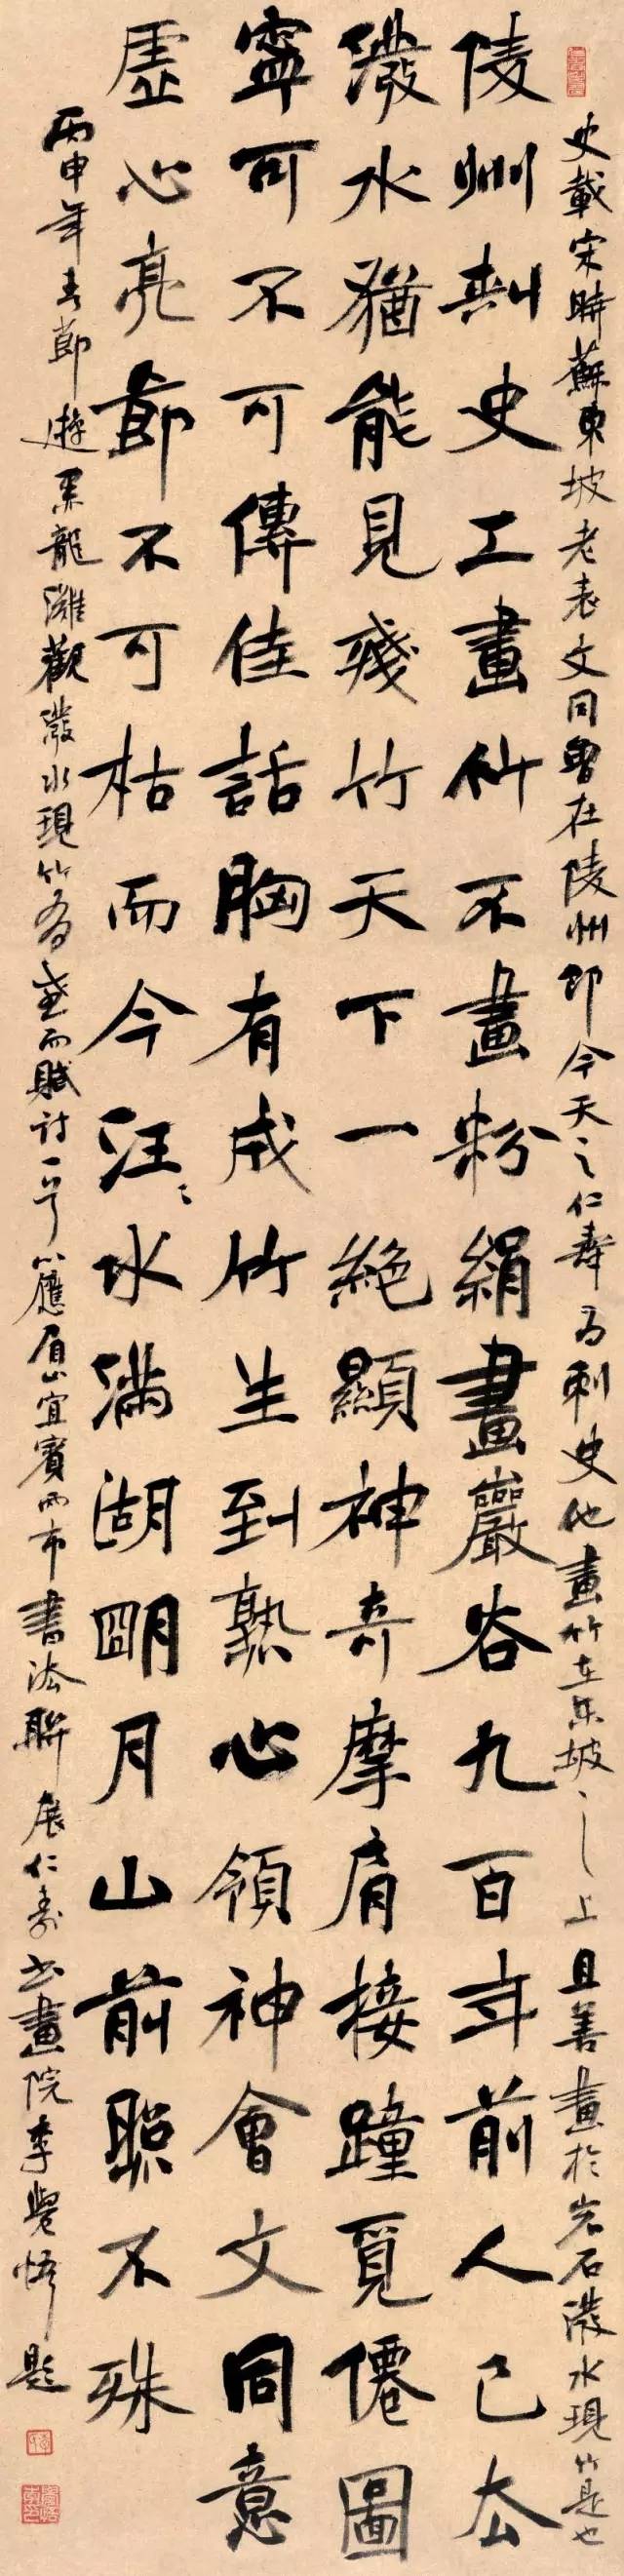 史載宋時蘇東坡老表文同曾在陵州即今天之仁壽為刺史他畫竹在東坡之上且善畫於岩石潑水現竹是也
陵州刺史工畫竹不畫粉絹畫巖谷九百年前人已去
潑水猶能見殘竹天下一絕顯神奇摩肩接踵覓僊圖
寧可不可傳佳話胸有成竹生到熟心領神會文同意
虛心亮節不可枯而今汪〻水滿湖明月山前照不殊
丙申年春節遊黑龍灘觀潑水現竹有感而賦詩一首以應眉山宜賓兩市書法聯展仁壽書畫院李覺悟題